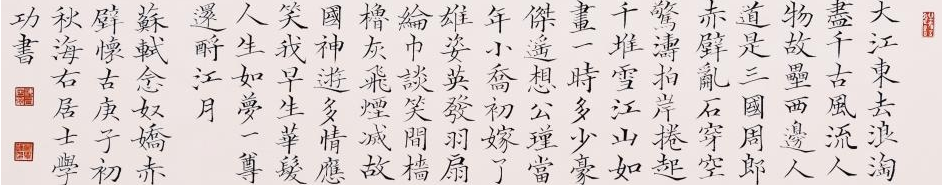 大江東去浪淘
盡千古風流人
物故壘西邊人
道是三國周郎
赤壁亂石穿空
驚濤拍岸捲起
千堆雪江山如
畫一時多少豪
傑遙想公瑾當
年小喬初嫁了
雄姿英發羽扇
綸巾談笑間檣
櫓灰飛煙滅故
國神遊多情應
笑我早生華髮
人生如夢一尊
還酹江月
蘇軾念奴嬌赤
壁懷古庚子初
秋海右居士學
功書